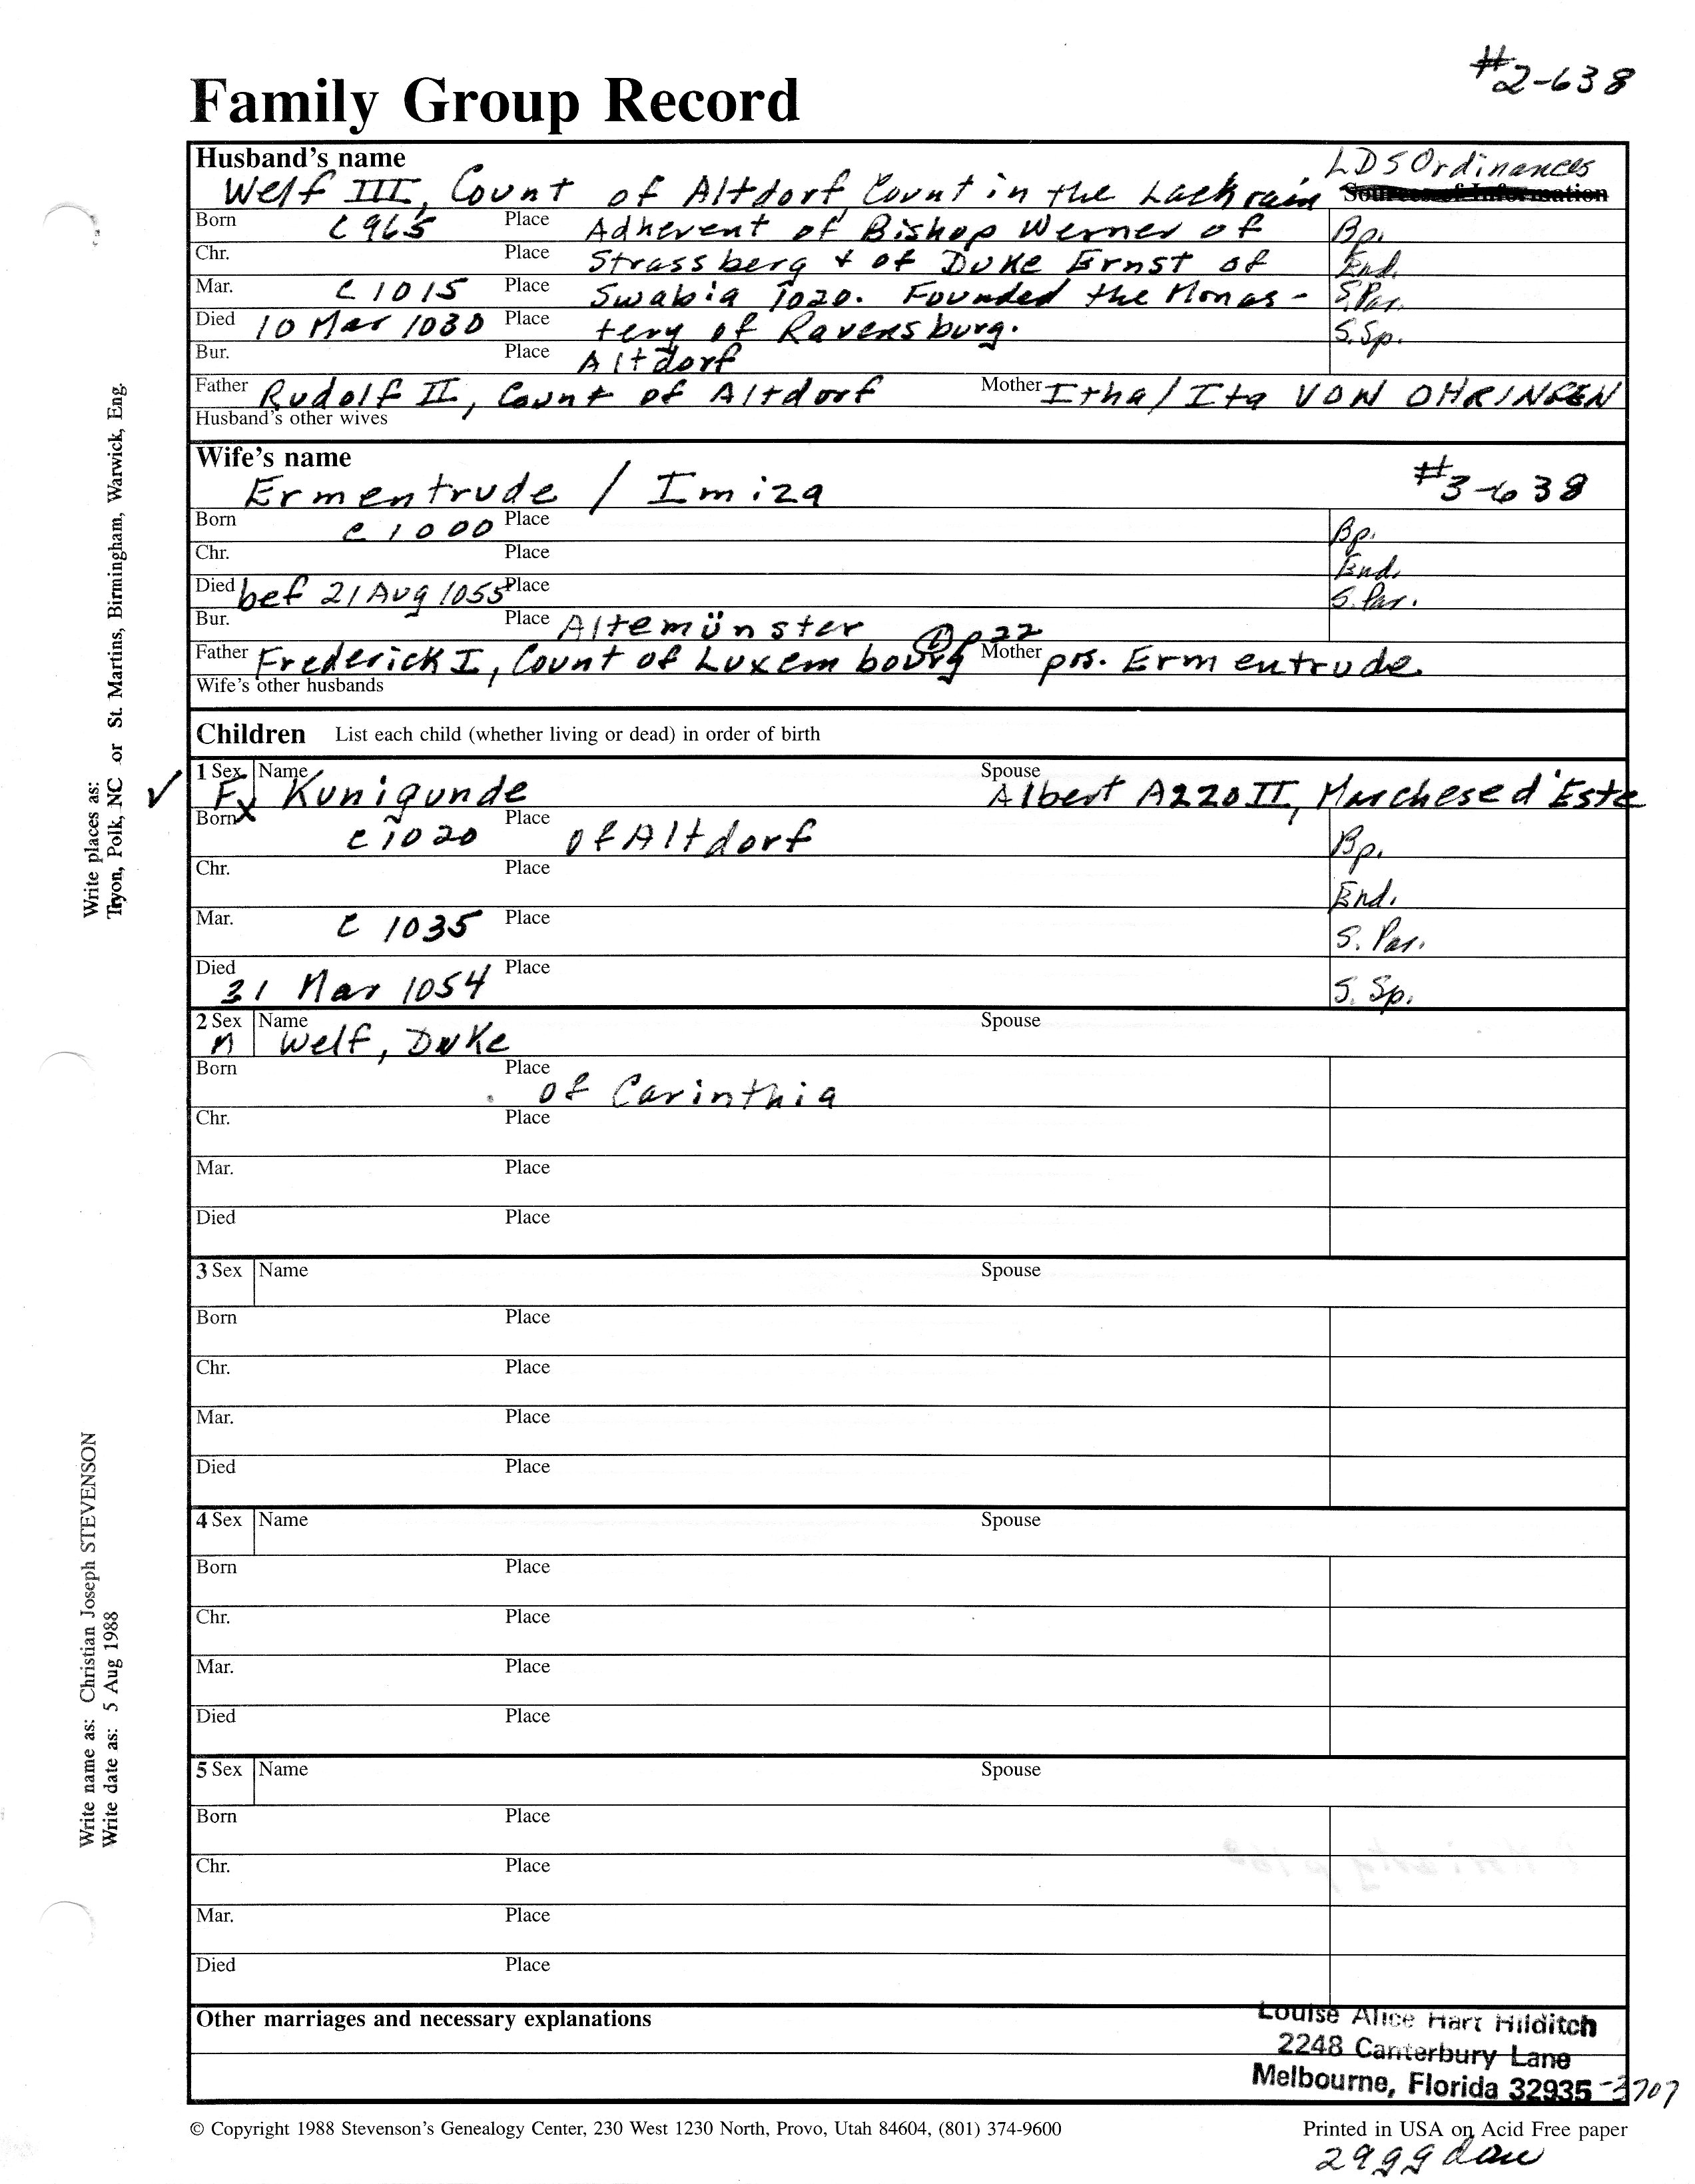 #2-638
Family Group Record
Husband's name
LDS Ordinances
Welf III, Count of Altdorf, Count in the Lechrain
Sources of Information
Born c 965 Place Adherent of Bishop Werner of Bp.
Chr. Place Strassberg + of Duke Ernst of End.
Mar. c 1015 Place Swabia 1020. Founded the Monas- S.Par.
Died 10 Mar 1030 Place tery of Ravensburg. S.Sp.
Bur. Place Altdorf
Father Rudolf II, Count of Altdorf Mother Itha/Ita VON OHRINGEN
Husband's other wives
Wife's name
Ermentrude / Imiza #3-638
Born c 1000 Place Bp.
Chr. Place End.
Died bef 21 Aug 1055 Place S. Par.
Bur. Place Altemünster
p22
Father Frederick I, Count of Luxembourg Mother prs. Ermentrude
Wife's other husbands
Children List each child (whether living or dead) in order of birth
1 Sex Name Spouse
✓ F x Kunigunde Albert Azzo II, Marchese d'Este
Born c 1020 Place of Altdorf Bp.
Chr. Place End.
Mar. c 1035 Place S. Par.
Died 31 Mar 1054 Place S. Sp.
2 Sex Name Spouse
M Welf, Duke
Born Place of Carinthia
Chr. Place
Mar. Place
Died Place
3 Sex Name Spouse
Born Place
Chr. Place
Mar. Place
Died Place
4 Sex Name Spouse
Born Place
Chr. Place
Mar. Place
Died Place
5 Sex Name Spouse
Born Place
Chr. Place
Mar. Place
Died Place
Other marriages and necessary explanations
Louise Alice Hart Hilditch
2248 Canterbury Lane
Melbourne, Florida 32935-3707
© Copyright 1988 Stevenson's Genealogy Center, 230 West 1230 North, Provo, Utah 84604, (801) 374-9600
Printed in USA on Acid Free paper
Write places as:
Tryon, Polk, NC or St. Martins, Birmingham, Warwick, Eng.
Write name as: Christian Joseph STEVENSON
Write date as: 5 Aug 1988